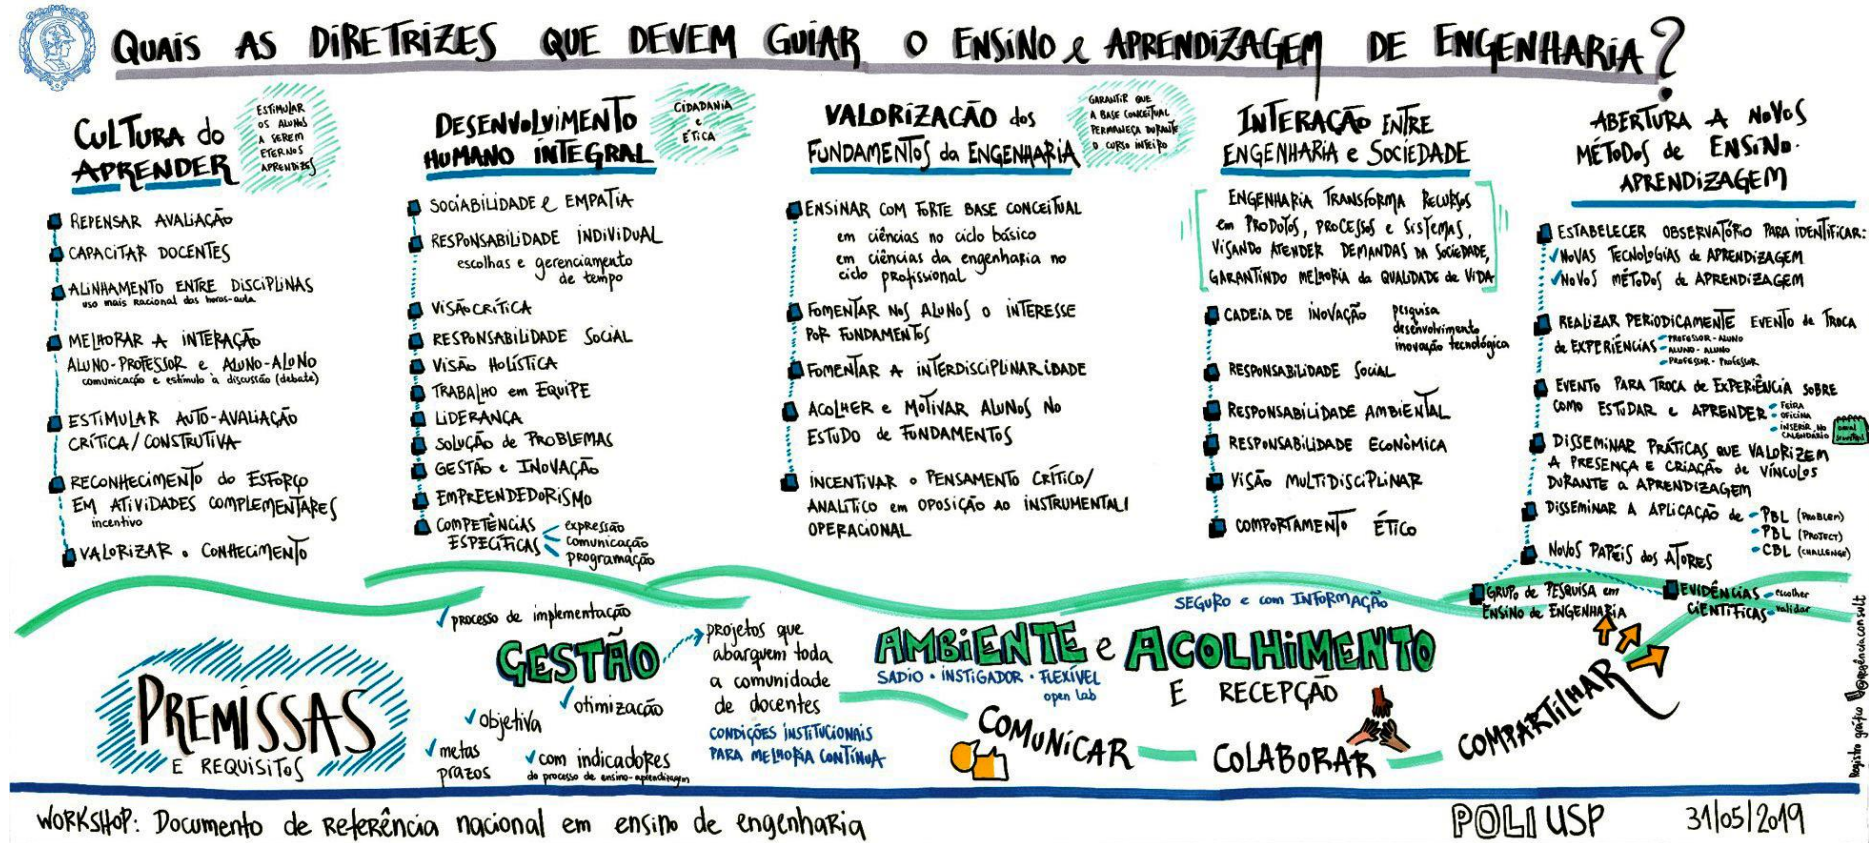 QUAIS AS DIRETRIZES QUE DEVEM GUIAR O ENSINO e APRENDIZAGEM DE ENGENHARIA?
CULTURA do
APRENDER
ESTIMULAR
OS ALUNOS
A SEREM
ETERNOS
APRENDIZES
REPENSAR AVALIAÇÃO
CAPACITAR DOCENTES
ALINHAMENTO ENTRE DISCIPLINAS
uso mais racional das horas-aula
MELHORAR A INTERAÇÃO
ALUNO-PROFESSOR e ALUNO-ALUNO
comunicação e estímulo à discussão (debate)
ESTIMULAR AUTO-AVALIAÇÃO
CRÍTICA/CONSTRUTIVA
RECONHECIMENTO do ESFORÇO
EM ATIVIDADES COMPLEMENTARES
incentivo
VALORIZAR o CONHECIMENTO
DESENVOLVIMENTO
HUMANO INTEGRAL
CIDADANIA
e
ÉTICA
SOCIABILIDADE e EMPATIA
RESPONSABILIDADE INDIVIDUAL
escolhas e gerenciamento
de tempo
VISÃO CRÍTICA
RESPONSABILIDADE SOCIAL
VISÃO HOLÍSTICA
TRABALHO em EQUIPE
LIDERANÇA
SOLUÇÃO de PROBLEMAS
GESTÃO e INOVAÇÃO
EMPREENDEDORISMO
COMPETÊNCIAS
ESPECÍFICAS
expressão
comunicação
programação
VALORIZAÇÃO dos
FUNDAMENTOS da ENGENHARIA
GARANTIR QUE
A BASE CONCEITUAL
PERMANEÇA DURANTE
O CURSO INTEIRO
ENSINAR COM FORTE BASE CONCEITUAL
em ciências no ciclo básico
em ciências da engenharia no
ciclo profissional
FOMENTAR NOS ALUNOS O INTERESSE
POR FUNDAMENTOS
FOMENTAR A INTERDISCIPLINARIDADE
ACOLHER e MOTIVAR ALUNOS NO
ESTUDO de FUNDAMENTOS
INCENTIVAR o PENSAMENTO CRÍTICO/
ANALÍTICO em OPOSIÇÃO AO INSTRUMENTAL/
OPERACIONAL
INTERAÇÃO ENTRE
ENGENHARIA e SOCIEDADE
ENGENHARIA TRANSFORMA RECURSOS
em PRODUTOS, PROCESSOS e SISTEMAS,
VISANDO ATENDER DEMANDAS DA SOCIEDADE,
GARANTINDO MELHORIA da QUALIDADE de VIDA
CADEIA DE INOVAÇÃO
pesquisa
desenvolvimento
inovação tecnológica
RESPONSABILIDADE SOCIAL
RESPONSABILIDADE AMBIENTAL
RESPONSABILIDADE ECONÔMICA
VISÃO MULTIDISCIPLINAR
COMPORTAMENTO ÉTICO
ABERTURA A NOVOS
MÉTODOS de ENSINO-
APRENDIZAGEM
ESTABELECER OBSERVATÓRIO PARA IDENTIFICAR:
✓NOVAS TECNOLOGIAS de APRENDIZAGEM
✓NOVOS MÉTODOS de APRENDIZAGEM
REALIZAR PERIODICAMENTE EVENTO de TROCA
de EXPERIÊNCIAS
PROFESSOR-ALUNO
ALUNO-ALUNO
PROFESSOR-PROFESSOR
EVENTO PARA TROCA de EXPERIÊNCIA SOBRE
COMO ESTUDAR e APRENDER
FEIRA
OFICINA
INSERIR NO
CALENDÁRIO
DISSEMINAR PRÁTICAS QUE VALORIZEM
A PRESENÇA E CRIAÇÃO de VÍNCULOS
DURANTE a APRENDIZAGEM
DISSEMINAR A APLICAÇÃO de
PBL (PROBLEM)
PBL (PROJECT)
CBL (CHALLENGE)
NOVOS PAPÉIS dos ATORES
GRUPO de PESQUISA em
ENSINO de ENGENHARIA
EVIDÊNCIAS
CIENTÍFICAS
escolher
validar
PREMISSAS
E REQUISITOS
✓processo de implementação
GESTÃO
✓otimização
✓objetiva
✓metas
prazos
✓com indicadores
do processo de ensino-aprendizagem
projetos que
abarquem toda
a comunidade
de docentes
CONDIÇÕES INSTITUCIONAIS
PARA MELHORIA CONTÍNUA
SEGURO e com INFORMAÇÃO
AMBIENTE e ACOLHIMENTO
SADIO · INSTIGADOR · FLEXÍVEL
open lab
E RECEPÇÃO
COMUNICAR
COLABORAR
COMPARTILHAR
WORKSHOP: Documento de Referência nacional em ensino de engenharia
POLI USP
31/05/2019